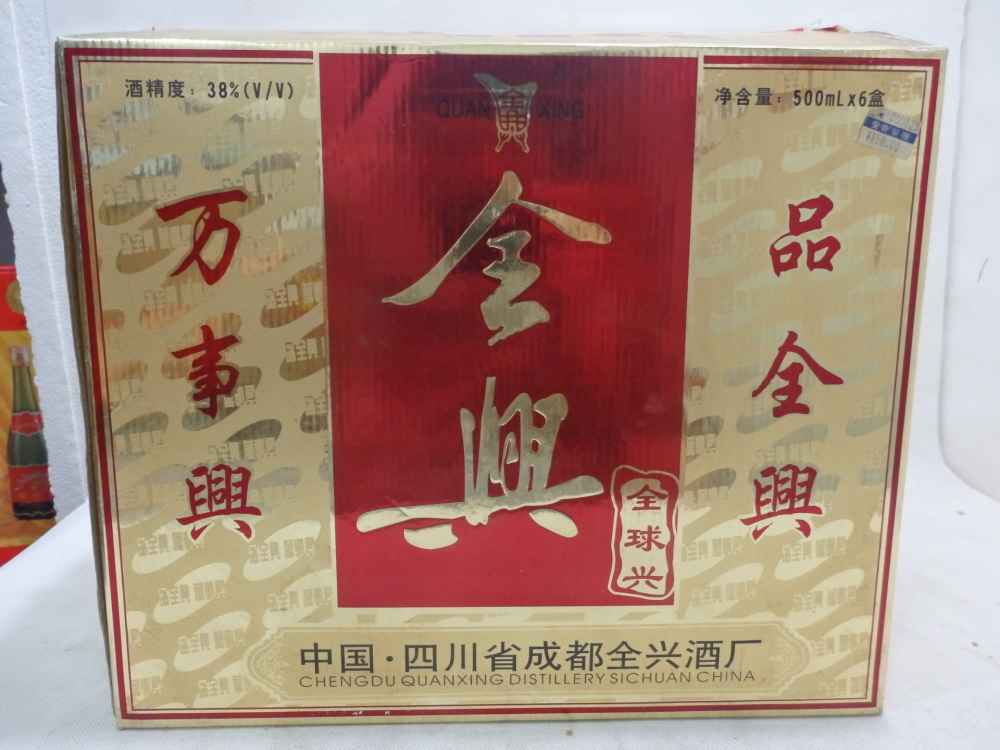 酒精度：38%(V/V)
QUAN XING
净含量：500mLx6盒
品全興
全興
万事興
全球兴
中国·四川省成都全兴酒厂
CHENGDU QUANXING DISTILLERY SICHUAN CHINA